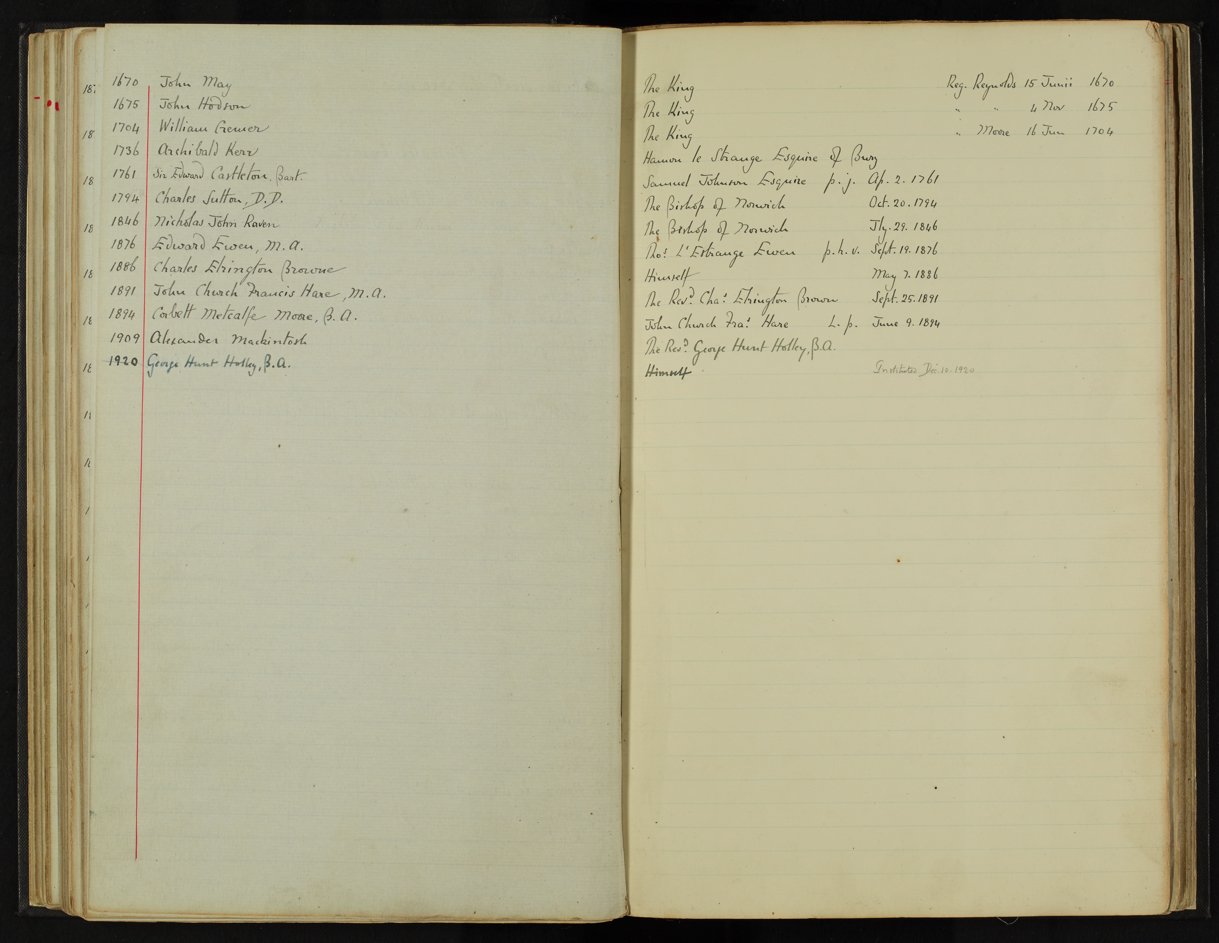 1670 John May
1675 John Hodson
1704 William Cremer
1736 Archibald Kerr
1761 Sir Edward Castleton, Bart.
1794 Charles Sutton, D.D.
1846 Nicholas John Raven
1876 Edward Ewen, M.A.
1886 Charles Elrington Browne
1891 John Church Francis Hare, M.A.
1894 Corbett Metcalfe Moore, B.A.
1909 Alexander Mackintosh
1920 George Hunt Holley, B.A.
The King Reg. Reynolds 15 Junii 1670
The King " " 4 Nov 1675
The King " Moore 16 Jun 1704
Hamon le Strange Esquire of Bury
Samuel Johnson Esquire p.j. Ap. 2. 1761
The Bishop of Norwich Oct. 20. 1794
The Bishop of Norwich Jly. 29. 1846
Thos. L'Estrange Ewen p.h.v. Sept. 19. 1876
Himself May 7. 1886
The Revd. Chas. Elrington Brown Sept. 25. 1891
John Church Fras. Hare L.p. June 9. 1894
The Revd. George Hunt Holley, B.A.
Himself Instituted Dec. 10. 1920